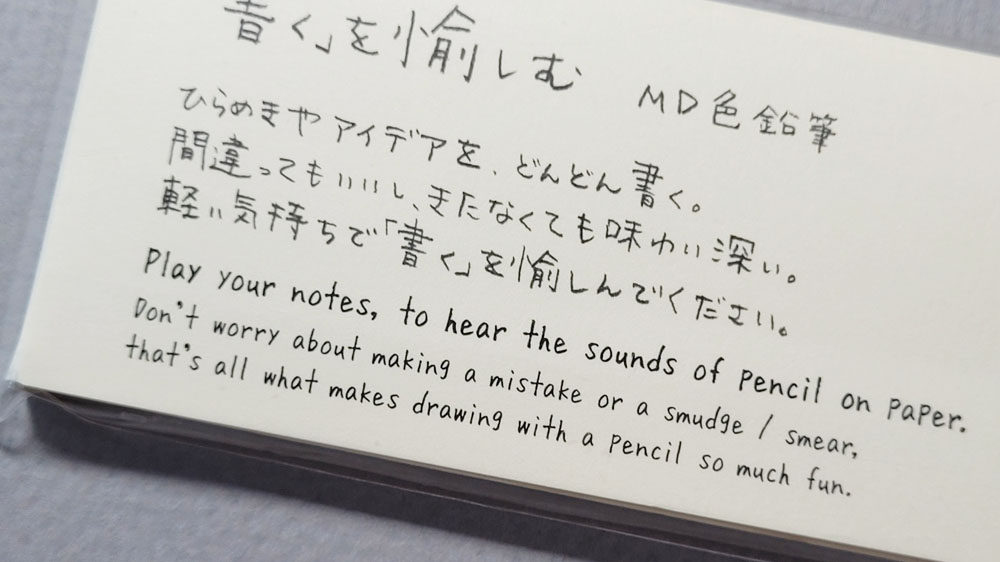 書く」を愉しむ MD色鉛筆
ひらめきやアイデアを、どんどん書く。
間違ってもいいし、きたなくても味わい深い。
軽い気持ちで「書く」を愉しんでください。
Play your notes, to hear the sounds of pencil on paper.
Don't worry about making a mistake or a smudge / smear,
that's all what makes drawing with a pencil so much fun.